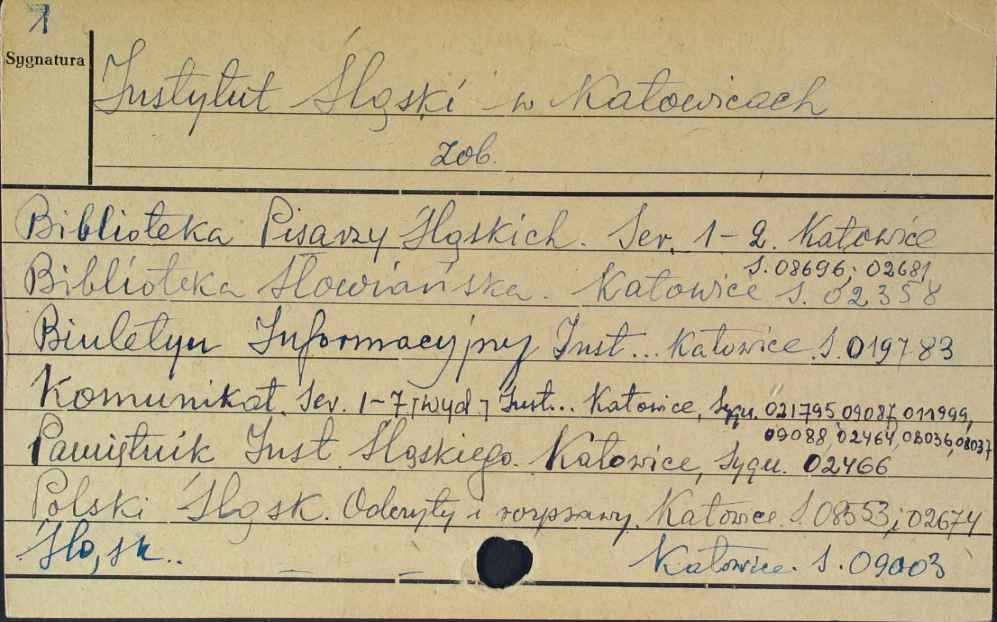 1
Sygnatura
Instytut Śląski w Katowicach
zob.
Biblioteka Pisarzy Śląskich. Ser. 1-2. Katowice
S. 08696; 02681
Biblioteka Słowiańska. Katowice S. 02358
Biuletyn Informacyjny Inst... Katowice. S. 019783
Komunikat. Ser. 1-7 [wyd] Inst... Katowice, Sygn. 021795, 09087, 011999,
09088, 02464, 08036, 08037
Pamiętnik Inst. Śląskiego. Katowice, Sygn. 02466
Polski Śląsk. Odczyty i rozprawy. Katowice. S. 08553; 02674
Śląsk.. Katowice. S. 09003